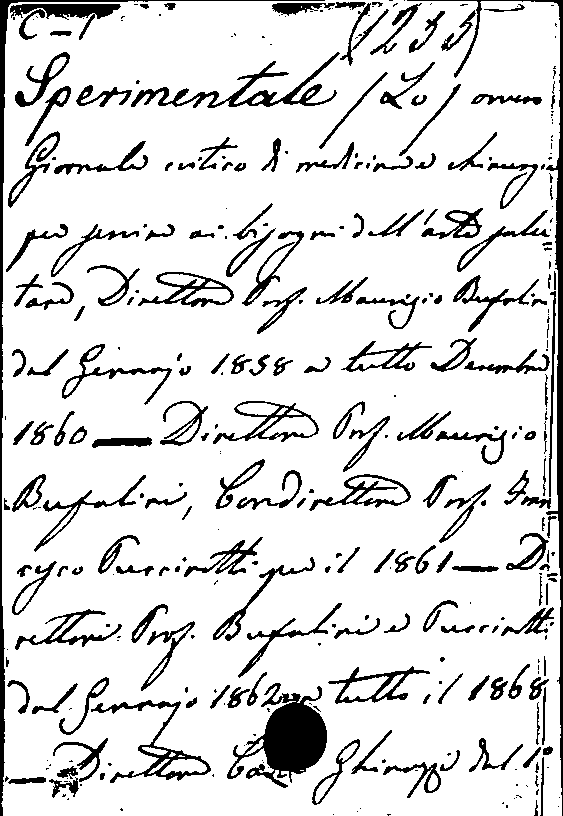 C-1 (1255)
Sperimentale (Lo) ovvero
Giornale critico di medicina e chirurgia
per servire ai bisogni dell'arte salu
tare, Direttore Prof. Maurizio Bufalini
dal Gennajo 1858 a tutto Decembre
1860 — Direttore Prof. Maurizio
Bufalini, Condirettore Prof. Fran
cesco Puccinotti per il 1861 — Di
rettori Prof. Bufalini e Puccinotti
dal Gennajo 1862 a tutto il 1868
— Direttore Ghinozzi dal 1°